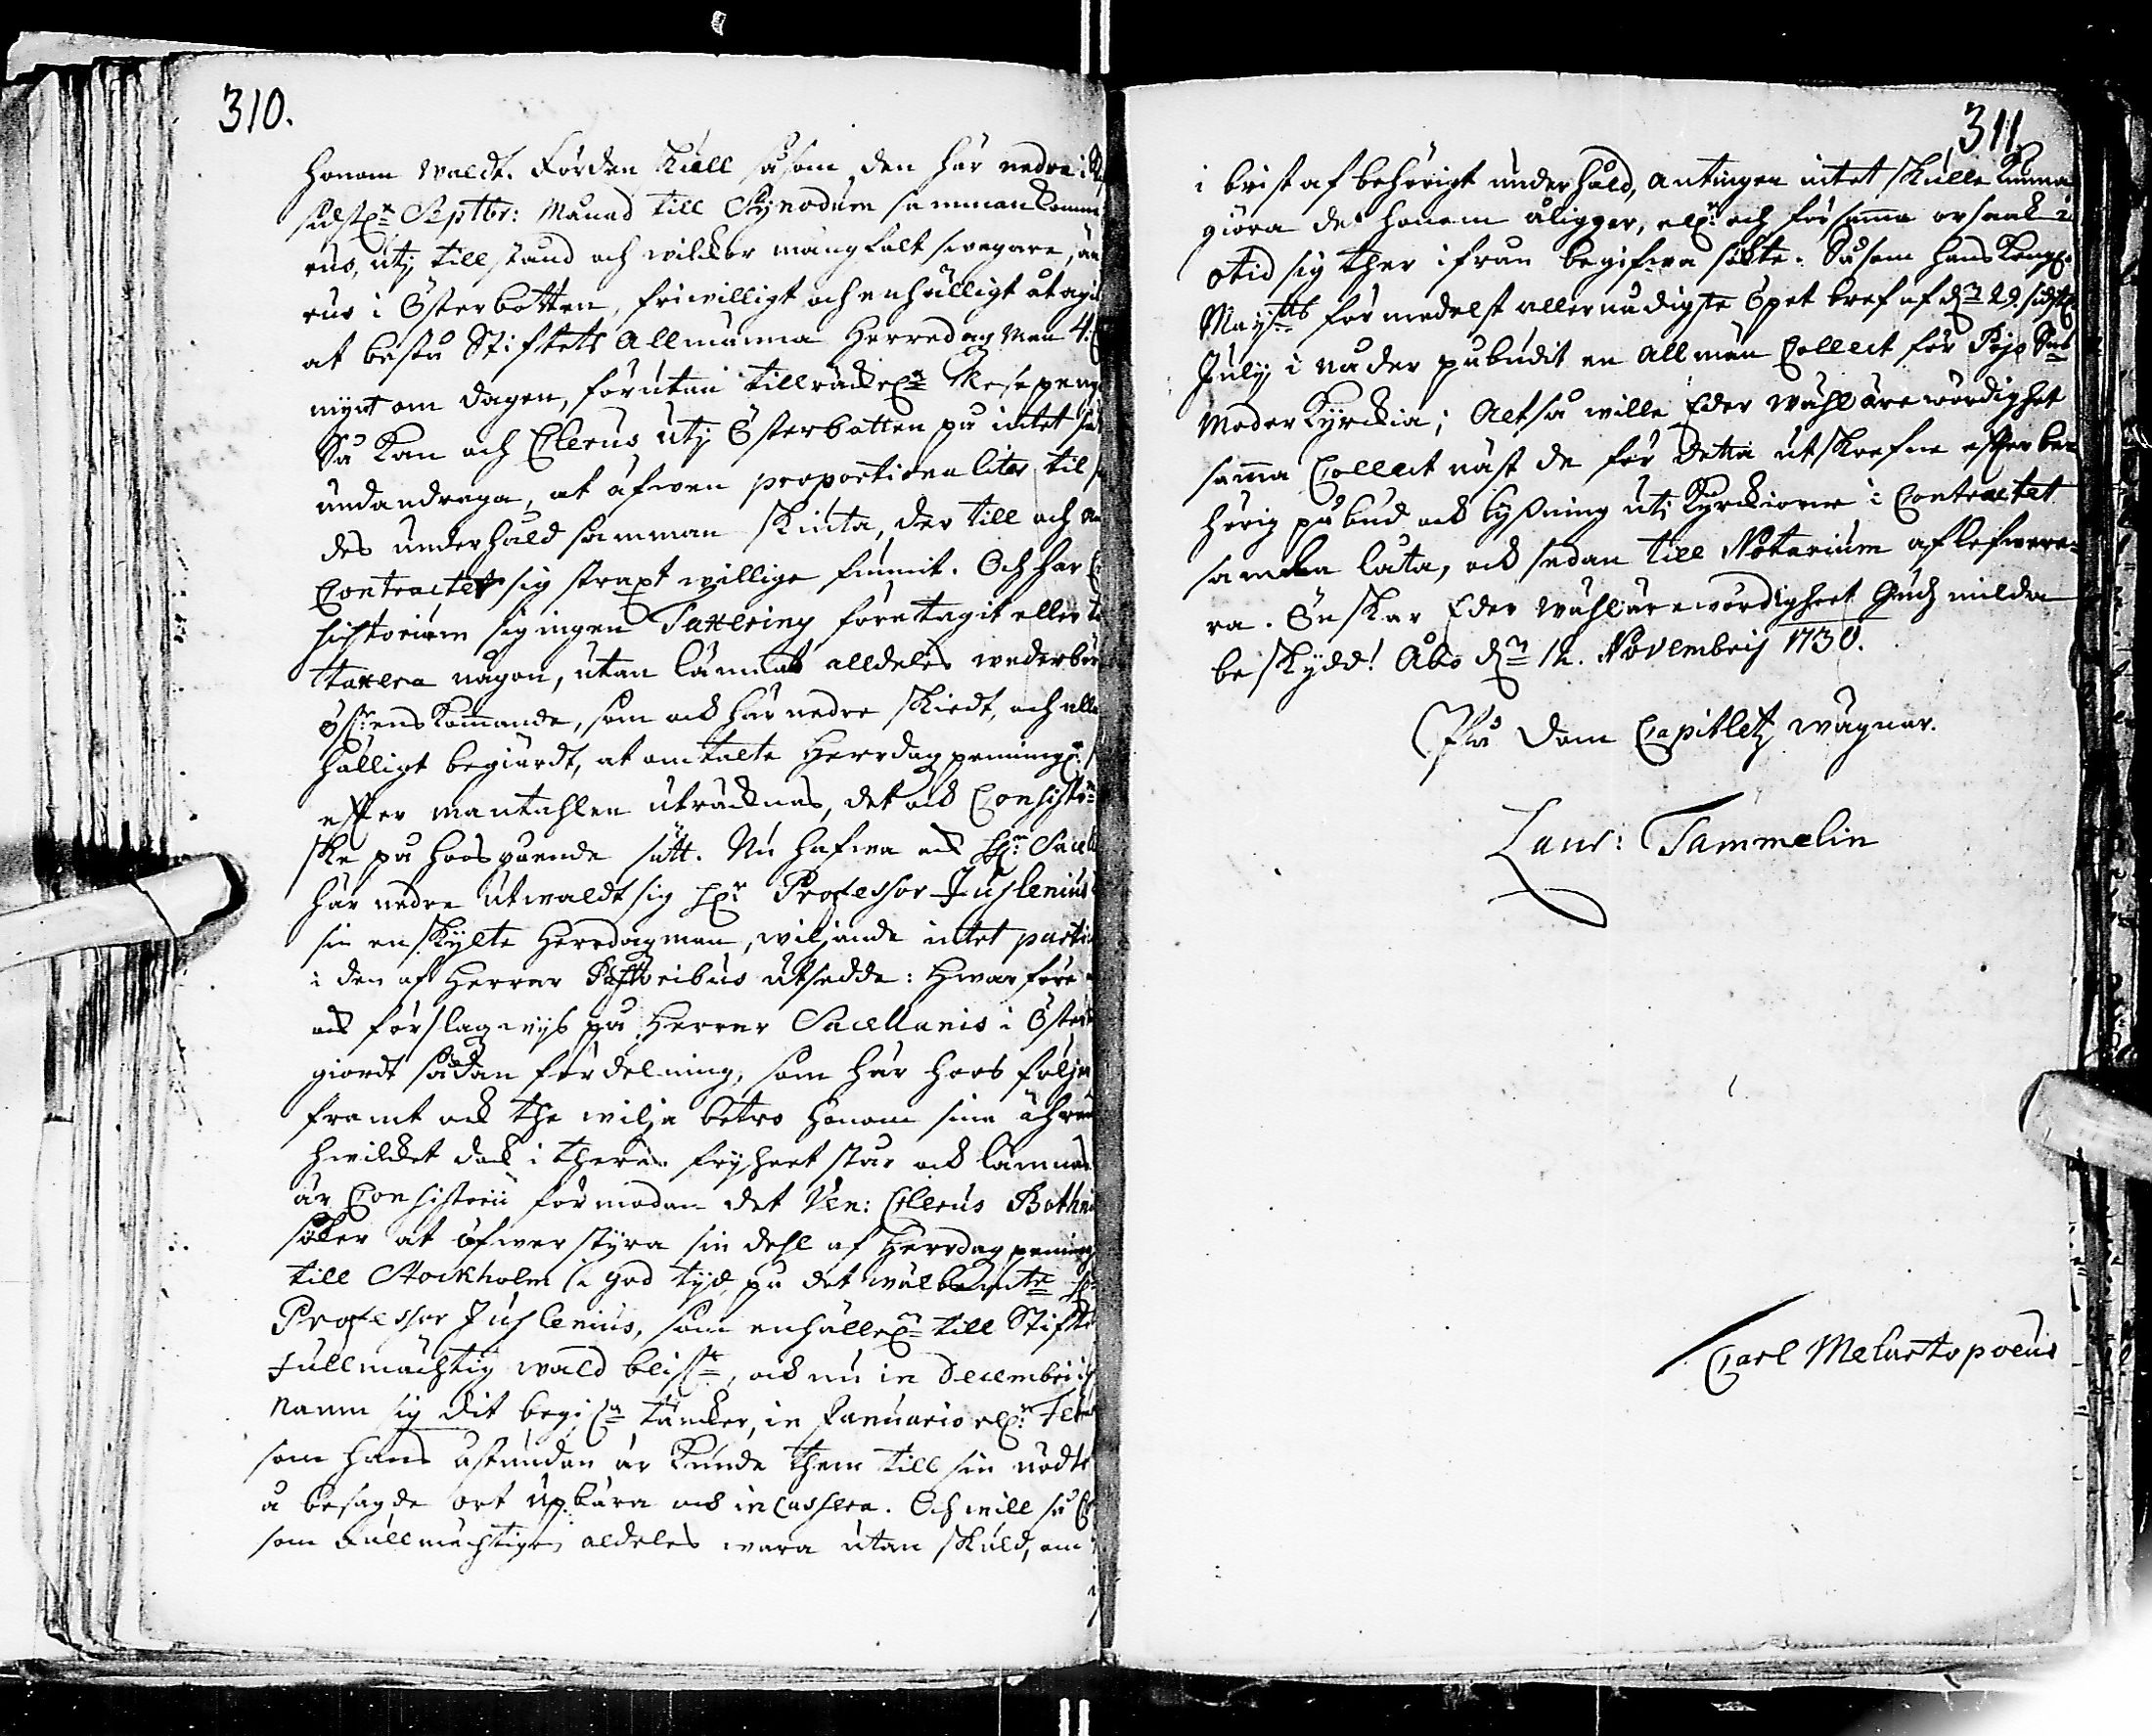 310.
honom waldt. Förden skiell såsom den här nedre i
sidst Septbr: Månad till Synodum sammankomne
rus, utj tillstånd och wilckor mångfalt swagare, än
rus i Österbotten, friwilligt och enhälligt åtagit
at bestå Stiftets Allmänna Herredag Man 4.
mynt om dagen, förutan tillräckel. Resepeng
Så kan och Clerus utj Österbotten på intet sä
undandraga, at äfwen proportionaliter til s
des underhåld samman skiuta, der till och
Contractet sig straxt willige funnit. Och har
sistorium sig ingen Taxering företagit eller
taxera någon, utan lämnat alldeles wederbör
öfr:enskommande, som och här nedre skiedt, och
hälligt begiärdt, at omtalte Herrdagspeningr
efter mantahlen uträcknas, det och Consistor
ske på hoosgående sätt. Nu hafwa och Hr: Sacel
här nedre utwaldt sig Hr Professor Juslenius
sin enskylte Herredagman, wiljande intet parti
i den af Herrar Pastoribus utsedde: Hwarföre
och förslagwijs på Herrar Sacellanis i Öster
giordt sådan fördelning, som här hoos följer
framt och the wilja betro honom sina ähren
hwilcket dock i theras fryheet står och lämnas.
är Consistorii förmodan det Ven: Clerus Bothni
söker at öfwerstyra sin dehl af Herrdagspening
till Stockholm i god tyd, på det wälbemte Hr
Professor Juslenius, som enhälleln till Stiftets
Fullmächtig wald blifn, och nu in Decembri
namn sig dit begifa täncker, in Januario elr Febr
som hans åstundan är kunde them till sin nödto
å besagde ort upbära och incassera. Och will så
som Fullmächtigen aldeles wara utan skuld, om
311.
i brist af behörigt underhåld, antingen intet skulle kunna
giöra det honom åligger, elr och för samma orsaak i
otid sig ther ifrån begifwa sökte. Såsom Hans Kongl.
Mayts för medelst allernådigste Öpet bref af d. 29. sidstl
July i nåder påbudit en allmän Collect för Pojo Sns
Moder Kyrckia; Altså wille Eder Wähläre wördighet
samma Collect näst de för detta utskrefne efter be-
hörig påbud och lysning uti Kyrckiorne i Contractet
samla låta, och sedan till Notarium aflefwere-
ra. Önskar Eder Wähläre wördigheet Gudz milda
beskydd! Åbo d. 12. Novembris 1730.
På Dom Capitletz wägnar.
Laur: Tammelin
Carl Melartopoeus